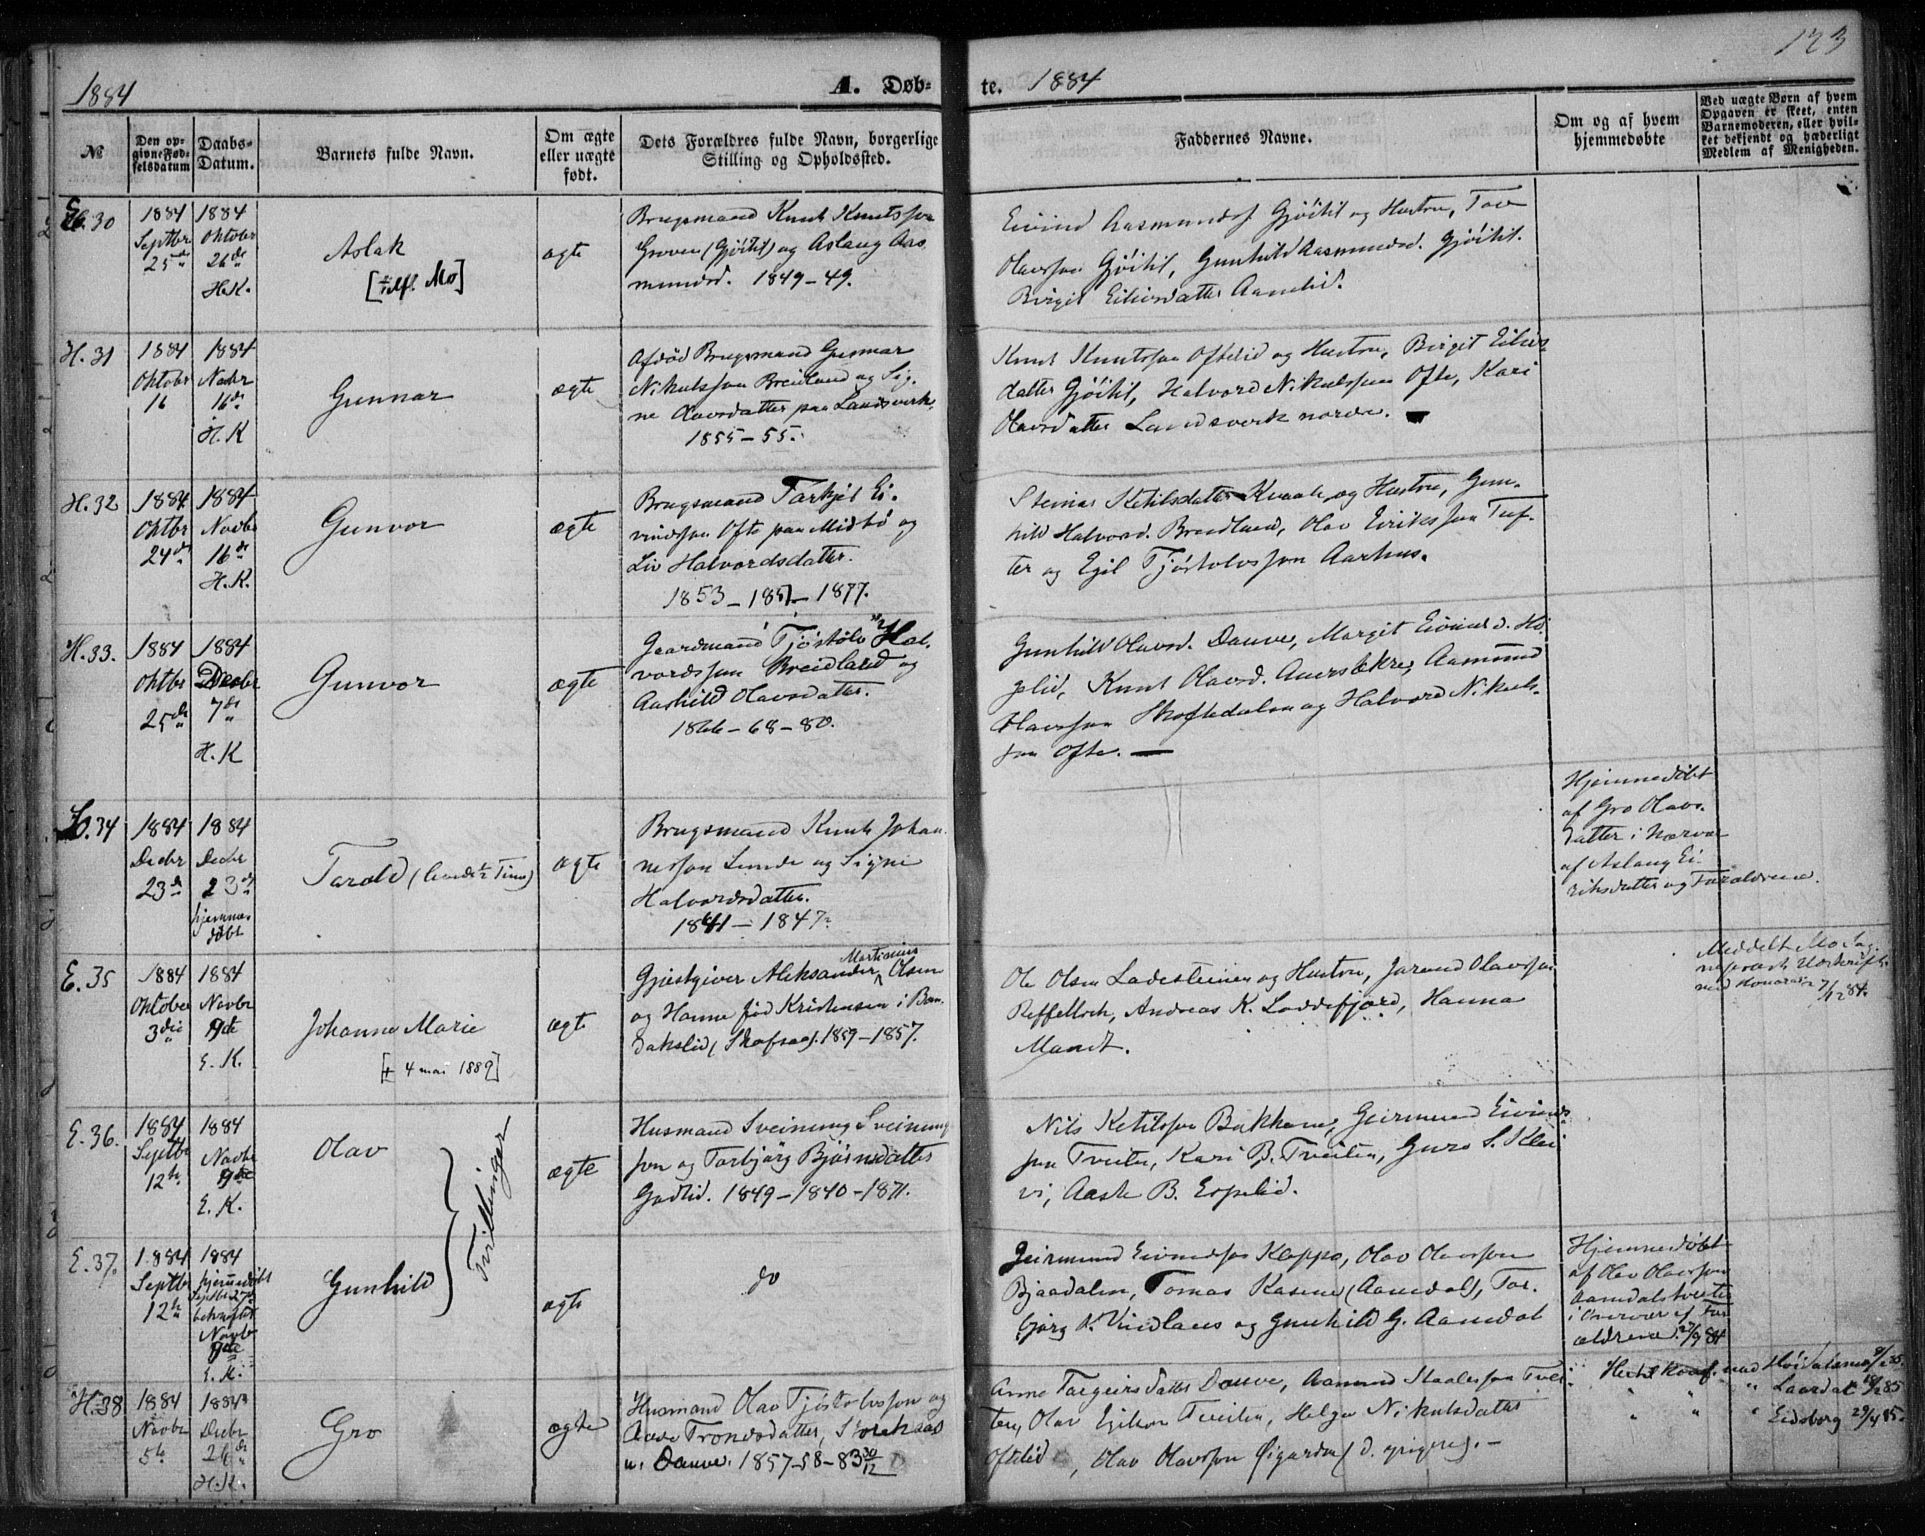 1884 A. Døb- te. 1884 123
№
Den op-
givne Fød-
selsdatum
Daabs-
Datum.
Barnets fulde Navn.
Om ægte
eller uægte
født.
Dets Forældres fulde Navn, borgerlige
Stilling og Opholdssted.
Faddernes Navne.
Om og af hvem
hjemmedøbte
Ved uægte Børn af hvem
Opgaven er skeet, enten
Barnemoderen, eller hvil-
ket bekjendt og hæderligt
Medlem af Menigheden.
30
1884
Septbr
25de
1884
Oktober
26de
H.K.
Aslak
Mo]
ægte
Brugsmand Knut Knutsson
Groven (Gjøitil) og Aslaug Aas
mundsd. 1849-49.
Eivind Aasmundss Gjøitil og Hustru, Tov
Olavsson Gjøitil, Gunhild Aasmundsd. Gjøitil.
Birgit Eilivsdatter Aamlid.
H. 31
1884
Oktobr
16
1884
Novbr
16de
H.K
Gunnar
ægte
Afdød Brugsmand Gunnar
Nikulsson Breidland og Sig-
ne Olavsdatter paa Landsverk.
1855-55.
Knut Knutsson Oftelid og Hustru, Birgit Eilivs
datter Gjøitil, Halvord Nikulsson Ofte, Kari
Olavsdatter Landsverk nordre.
H. 32
1884
Oktbr
24de
1884
Novbr
16de
H.K.
Gunvor
ægte
Brugsmand Tarkjel Ei-
vindson Ofte paa Midbø og
Liv Halvordsdatter.
1853-1851-1877.
Steinar Ketilsdatter Kvaale og Hustru, Gun-
hild Halvord. Breidland, Olav Eiriksson Tuf-
ter og Egil Tjøstolvsson Aarhus.
H. 33.
1884
Oktbr
25de
1884
Decbr
7de
H.K
Gunvor
ægte
Gaardmand Tjøstolv Hal-
vordsson Breidland og
Aashild Olavsdatter.
1866-68-80.
Gunhild Olavsd. Dauve, Margit Eivindsd. Hø
gelid, Knut Olavsd. Auersækre, Aamund
Olavsson Skoftedalen og Halvord Nikuls-
son Ofte.
34
1884
Decbr
23de
1884
Decbr
23de
hjemme-
døbt
Tarald (levede ½ Time)
ægte
Brugsmand Knut Johan
nesson Lunde og Signe
Halvordsdatter.
1841-1847
Hjemmedøbt
af Gro Olavs-
datter i Nærvær
af Aslaug Ei-
riksdatter og Forældrene.
E. 35
1884
Oktober
3die
1884
Novbr
9de
E.K.
Johanne Marie
[+ 4 mai 1889]
ægte
Gjestgiver Aleksander Martinius Olsen
og Hanne fød Kristensen i Ban
dakslid (Skafsaa). 1859-1857.
Ole Olsen Ladesteinen og Hustru, Jorand Olavsson
Reffelbæk, Andreas K. Loddefjord, Hanna
Mandt.
Meddelt Mo Sog-
nepræst Udskrift
E. 36.
1884
Septbr
12te
1884
Novbr
9de
E.K.
Olav
Tvillinger
ægte
Husmand Sveinung Sveinung
son og Torbjörg Bjørnsdatter
Godlid. 1849-1840-1871.
Nils Ketilsson Bakkane, Geirmund Eivinds
son Tveiten, Kari B. Tveiten, Guro S. Klei
vi, Aaste B. Espelid.
E. 37.
1884
Septbr
12te
1884
hjemmedøbt
Septbr 27de
bekræftet
Novbr
9de
E.K.
Gunhild
ægte
do
Geirmund Eivindsson Kleppo, Olav Olavsson
Bjaadalen, Tomas Kasene (Aamdal), Tor-
bjørg K. Vindlaus og Gunhild G. Aamdal
Hjemmedøbt
af Olav Olavsson
Aamdalstveiten
i Overvær af For
ældrene. 27/9 84
H. 38
1884
Novbr
5te
1884
Decbr
26de
H.K.
Gro
ægte
Husmand Olav Tjøstolvsson og
Aase Trondsdatter, Storekaas
u. Dauve. 1857-58-83 30/12
Anne Targeirsdatter Dauve, Aamund Staalesson Tvei-
ten, Olav Egilson Tveiten, Helga Nikulsdatter
Oftelid, Olav Olavsson Øigarden
med Høidalsmo
" " " Laardal
" " " Eidsborg 29/4 85.